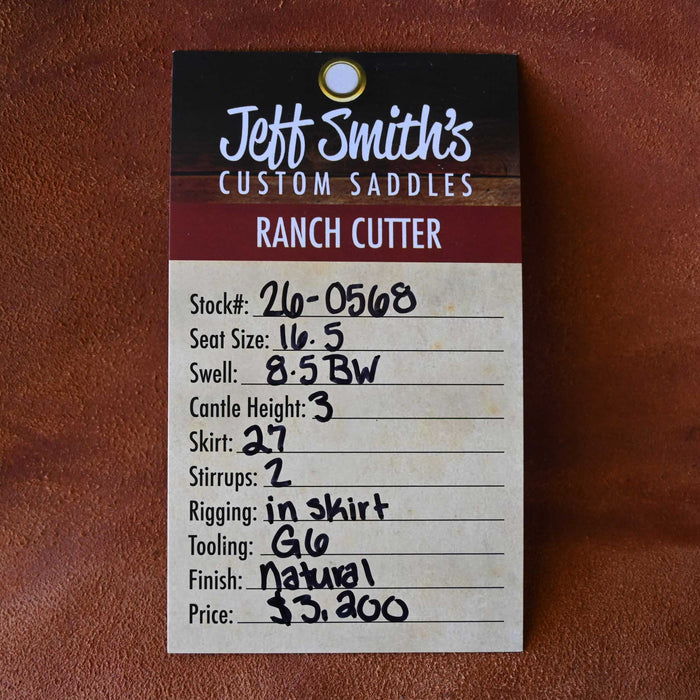 Jeff Smith's
CUSTOM SADDLES
RANCH CUTTER
Stock#: 26-0568
Seat Size: 16.5
Swell: 8.5 BW
Cantle Height: 3
Skirt: 27
Stirrups: 2
Rigging: in skirt
Tooling: G6
Finish: natural
Price: $3,200